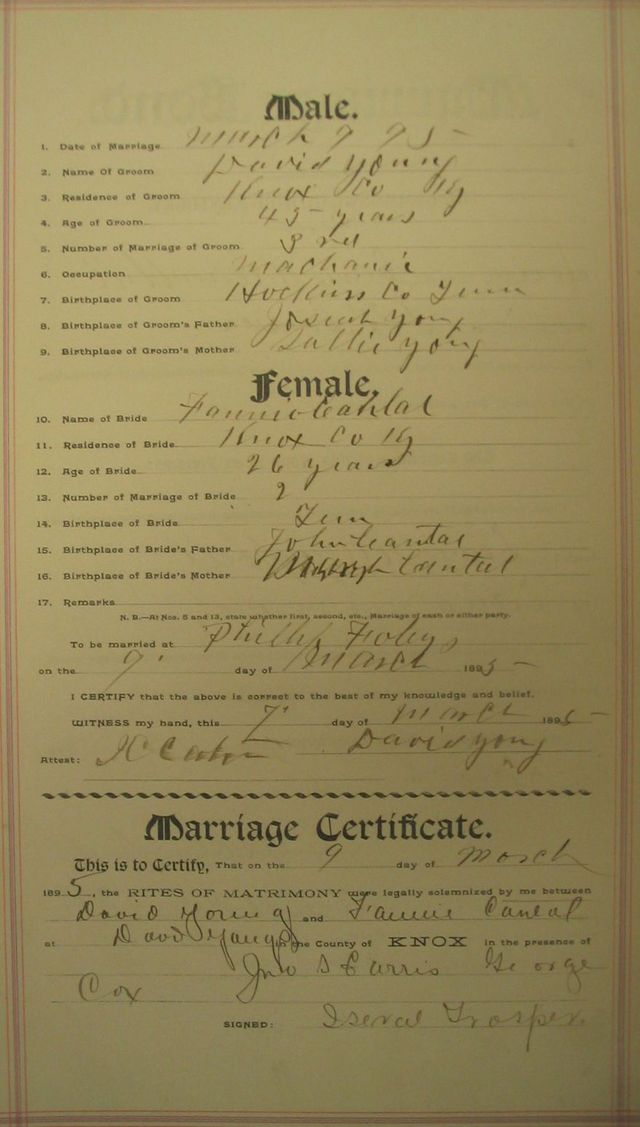 Male.
1. Date of Marriage March 9 95
2. Name Of Groom David Young
3. Residence of Groom Knox Co Ky
4. Age of Groom 45 years
5. Number of Marriage of Groom 3rd
6. Occupation Machanic
7. Birthplace of Groom Co Tenn
8. Birthplace of Groom's Father Josiah Yong
9. Birthplace of Groom's Mother Sallie Yong
Female.
10. Name of Bride Fannie
11. Residence of Bride Knox Co Ky
12. Age of Bride 26 years
13. Number of Marriage of Bride 2
14. Birthplace of Bride Tenn
15. Birthplace of Bride's Father John
16. Birthplace of Bride's Mother
17. Remarks
N. B.—At Nos. 5 and 13, state whether first, second, etc., Marriage of each or either party.
To be married at
on the day of March 1895
I CERTIFY that the above is correct to the best of my knowledge and belief.
WITNESS my hand, this 7' day of March 1895
Attest: David Yong
Marriage Certificate.
This is to Certify, That on the 9 day of March
1895, the RITES OF MATRIMONY were legally solemnized by me between
David Young and Fannie
at in the County of KNOX in the presence of
Jno S George
Cox
SIGNED: Iseral Trosper